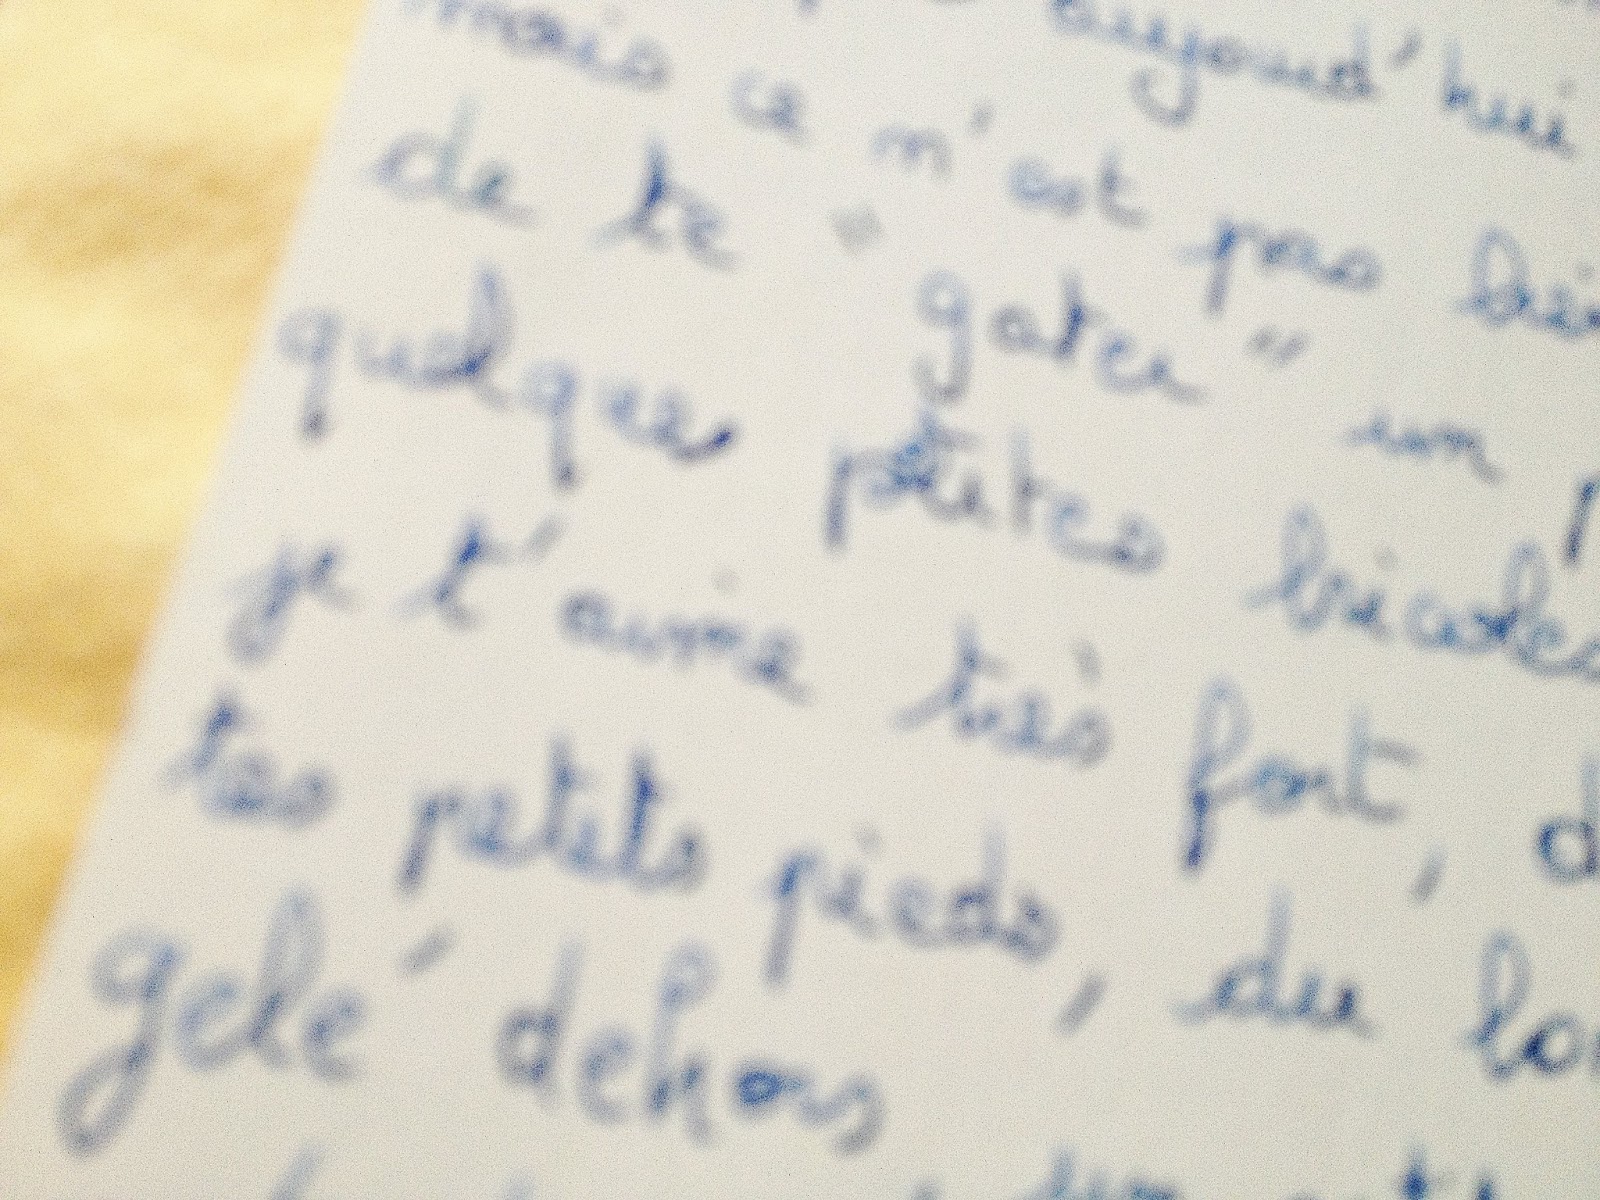 aujourd'hui
mais ce n'est pas
de te " gater " un
quelques petites bricoles
je t'aime très fort,
tes petits pieds, du
gelé dehors